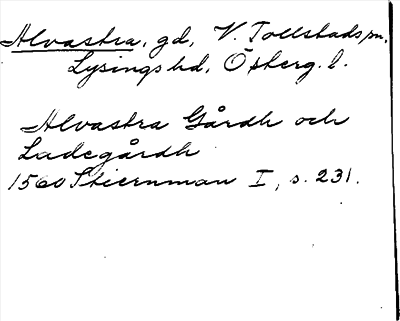 Alvastra, gd, V. Tollstads sn,
Lysings hd, Österg. l.
Alvastra Gårdh och
Ladegårdh
1560 Stiernman I, s. 231.